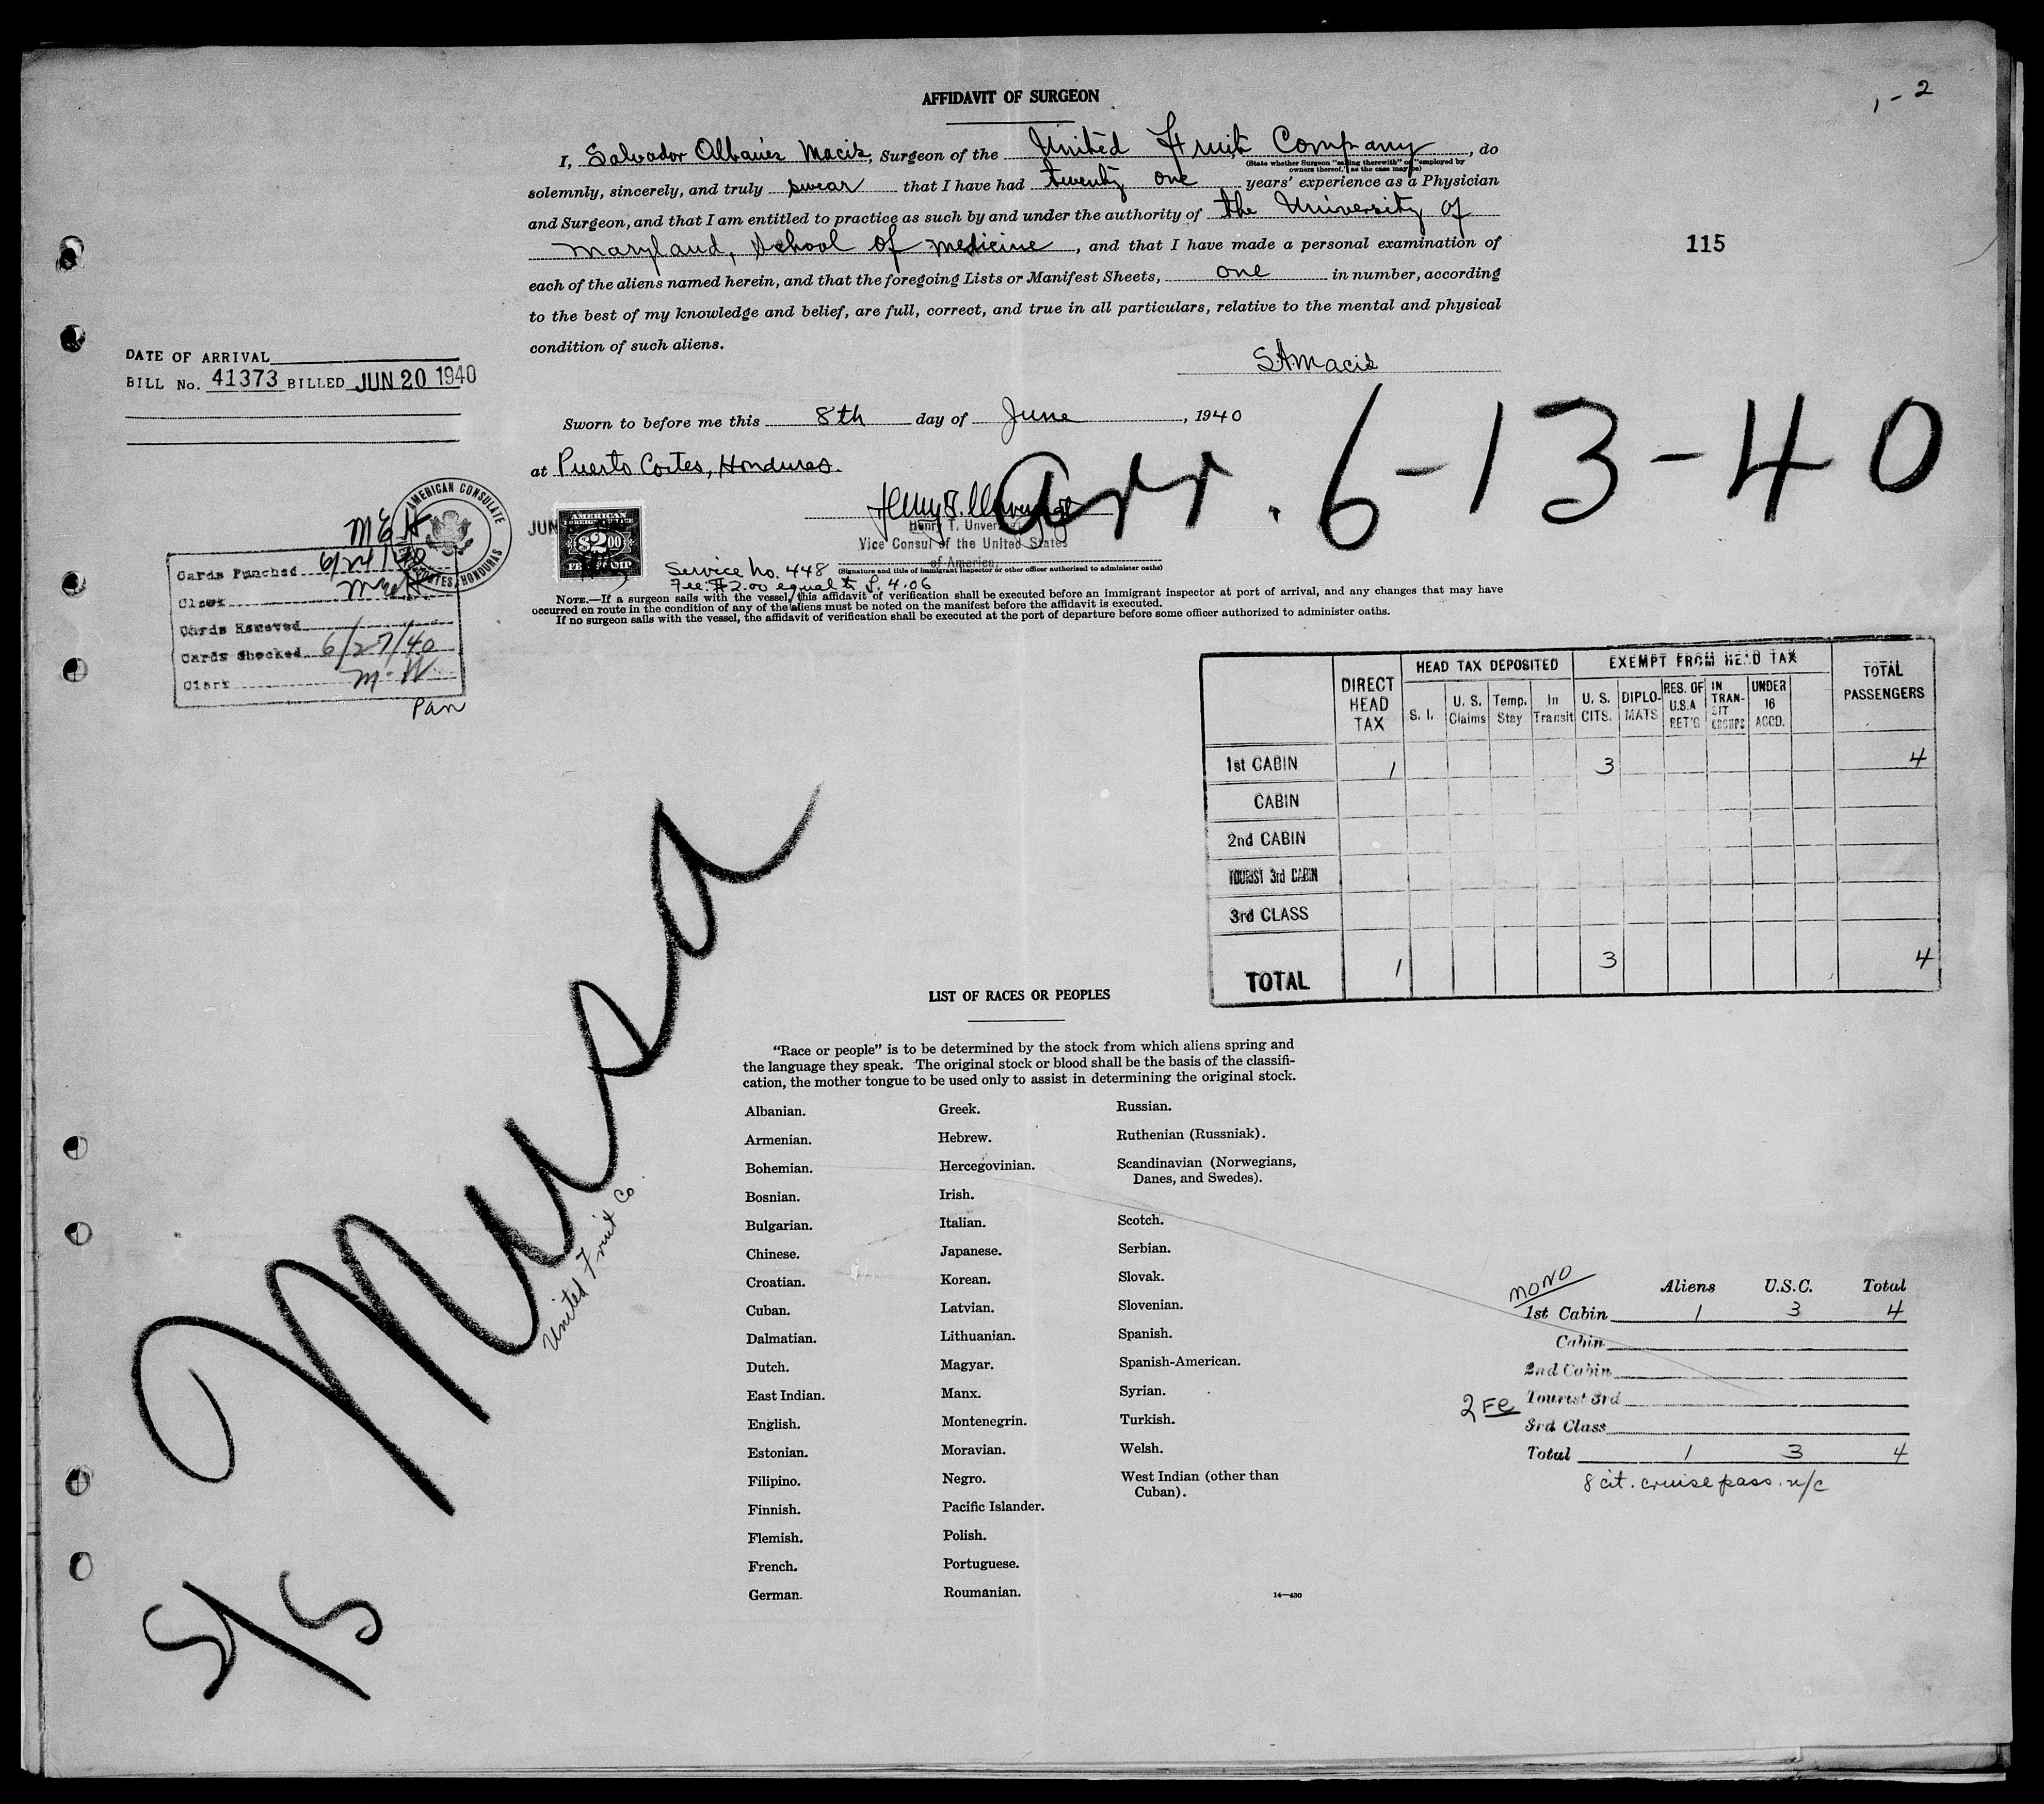 1-2
AFFIDAVIT OF SURGEON
I, Salvador Albanéz Macis, Surgeon of the United Fruit Company, do
(State whether Surgeon "sailing therewith" or "employed by
owners thereof," as the case may be)
solemnly, sincerely, and truly swear that I have had twenty one years' experience as a Physician
and Surgeon, and that I am entitled to practice as such by and under the authority of the University of
Maryland, School of medicine, and that I have made a personal examination of
115
each of the aliens named herein, and that the foregoing Lists or Manifest Sheets, one in number, according
to the best of my knowledge and belief, are full, correct, and true in all particulars, relative to the mental and physical
condition of such aliens.
S.A.Macis
DATE OF ARRIVAL
BILL No. 41373 BILLED JUN 20 1940
Sworn to before me this 8th day of June, 1940
at Puerto Cortes, Honduras.
arr. 6-13-40
AMERICAN CONSULATE
CORTES, HONDURAS
JUN
AMERICAN
FOREIGN SERVICE
$2.00
FEE STAMP
Henry T.
Vice Consul of the United States
of America.
(Signature and title of immigrant inspector or other officer authorized to administer oaths)
Service No. 448
Fee: $2.00 equal to L. 4.06
MEH
Cards Punched 6/24/40
Clerk MEH
Cards Removed
Cards Checked 6/27/40
Clerk M.W.
Pan
NOTE.—If a surgeon sails with the vessel, this affidavit of verification shall be executed before an immigrant inspector at port of arrival, and any changes that may have
occurred en route in the condition of any of the aliens must be noted on the manifest before the affidavit is executed.
If no surgeon sails with the vessel, the affidavit of verification shall be executed at the port of departure before some officer authorized to administer oaths.
DIRECT HEAD TAX
HEAD TAX DEPOSITED
EXEMPT FROM HEAD TAX
TOTAL PASSENGERS
S. I. U. S. Claims Temp. Stay In Transit U. S. CITS. DIPLO-MATS RES. OF U.S.A RET'G IN TRAN-SIT GROUPS UNDER 16 ACCD.
1st CABIN 1 3 4
CABIN
2nd CABIN
TOURIST 3rd CABIN
3rd CLASS
TOTAL 1 3 4
S/S Musa
United Fruit Co.
LIST OF RACES OR PEOPLES
"Race or people" is to be determined by the stock from which aliens spring and
the language they speak. The original stock or blood shall be the basis of the classifi-
cation, the mother tongue to be used only to assist in determining the original stock.
Albanian.
Armenian.
Bohemian.
Bosnian.
Bulgarian.
Chinese.
Croatian.
Cuban.
Dalmatian.
Dutch.
East Indian.
English.
Estonian.
Filipino.
Finnish.
Flemish.
French.
German.
Greek.
Hebrew.
Hercegovinian.
Irish.
Italian.
Japanese.
Korean.
Latvian.
Lithuanian.
Magyar.
Manx.
Montenegrin.
Moravian.
Negro.
Pacific Islander.
Polish.
Portuguese.
Roumanian.
Russian.
Ruthenian (Russniak).
Scandinavian (Norwegians,
Danes, and Swedes).
Scotch.
Serbian.
Slovak.
Slovenian.
Spanish.
Spanish-American.
Syrian.
Turkish.
Welsh.
West Indian (other than
Cuban).
14—430
MONO
Aliens U.S.C. Total
1st Cabin 1 3 4
Cabin
2nd Cabin
2 Fe Tourist 3rd
3rd Class
Total 1 3 4
8 cit. cruise pass. n/c